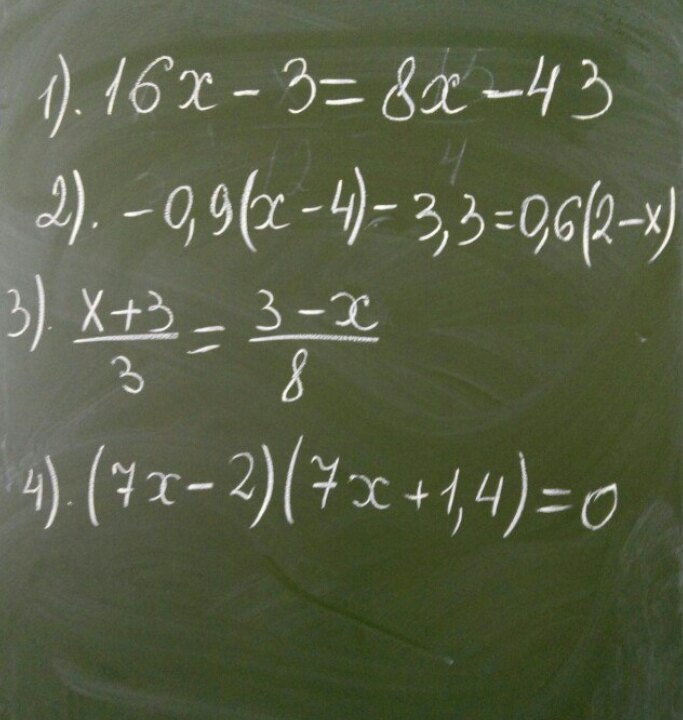 1). 16x - 3 = 8x - 43
2). -0,9(x - 4) - 3,3 = 0,6(2 - x)
3). \frac{x+3}{3} = \frac{3-x}{8}
4). (7x - 2)(7x + 1,4) = 0